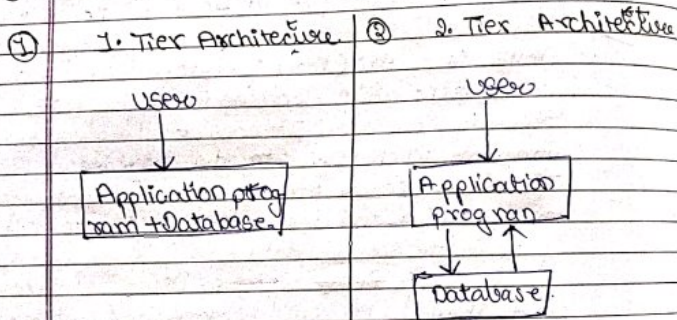 ① 1. Tier Architecture
User
Application prog
ram + Database.
② 2. Tier Architecture
User
Application
progran
Database.